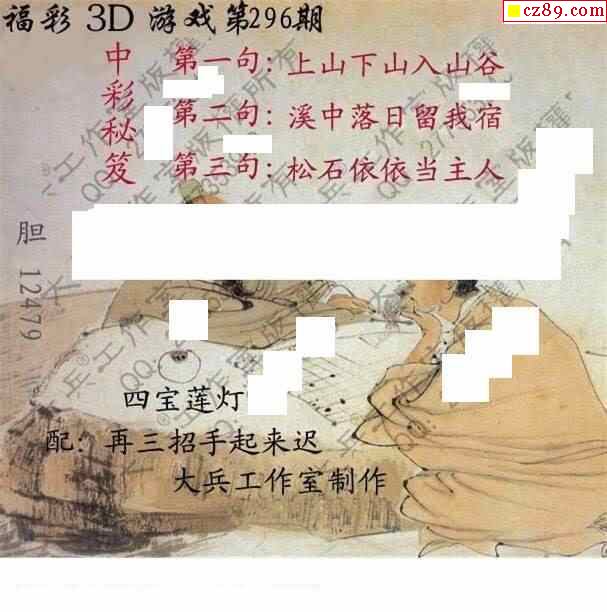 cz89.com
福彩 3D 游戏第296期
中彩秘笈
第一句：上山下山入山谷
第二句：溪中落日留我宿
第三句：松石依依当主人
胆 12479
四宝莲灯
配：再三招手起来迟
大兵工作室制作